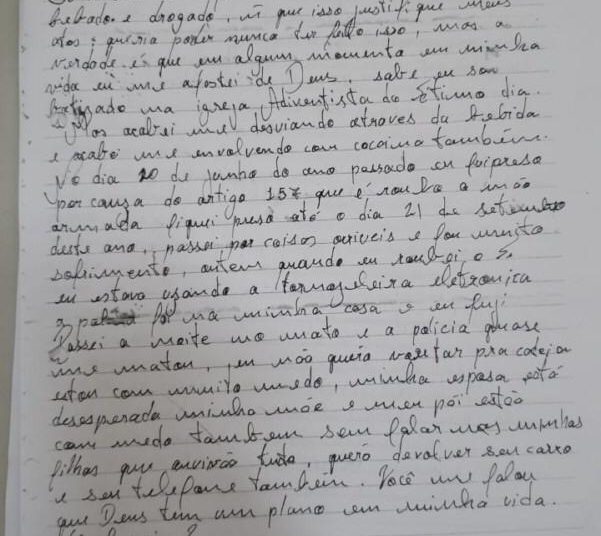 bebado e drogado, ñ que isso justifique meus
atos, queria poder nunca ter feito isso, mas a
verdade é que em algum momento em minha
vida eu me afastei de Deus, sabe eu sou
batizado na igreja Adventista do Sétimo dia.
Mas acabei me desviando através da bebida
e acabei me envolvendo com cocaina também.
No dia 20 de junho do ano passado eu fui preso
por causa do artigo 157, que é rouba a mão
armada fiquei preso até o dia 21 de setembro
deste ano, passei por coisas orriveis e fou muito
sofrimento, ontem quando eu roubei o Sr
eu estava usando a tornozeleira eletronica
a foi na minha casa e eu fugi
Passei a noite no mato e a policia quase
me matou, eu não quero voutar pra cadeia
estou com muito medo, minha esposa está
desesperada minha mãe e meu pai estão
com medo tambem sem falar nas minhas
filhas que ouvirão tudo, quero devolver seu carro
e seu telefone também. Você me falou
que Deus tem um plano em minha vida.